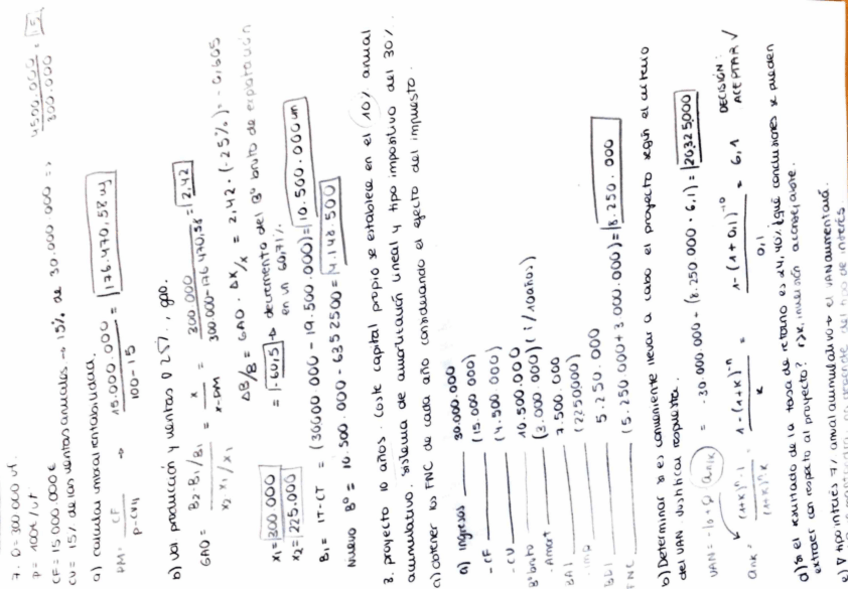 7. Q = 300 000 uf.
P = 100€/uf
CF = 15 000 000€
CV = 15% de las ventas anuales → 15% de 30.000.000 =>
4500.000 / 300.000 = 15
a) calcular umbral rentabilidad.
PM = CF / P-CVu → 15.000.000 / 100-15 = 176.470,58 uf
b) var producción y ventas ∇ 25%, gao.
GAO = B2-B1/B1 / x2-x1/x1 = x / x-PM = 300.000 / 300 000-176 470,58 = 2,42
ΔB/B = GAO · Δx/x = 2,42 · (-25%) = -0,605
= -60,5 → decremento del Bº bruto de explotación
en un 60,71%.
x1 = 300 000
x2 = 225.000
B1 = IT-CT = (30000 000 - 19.500.000) = 10.500.000 um
Nuevo Bº = 10.500.000 - 6352500 = 4.148.500
3. proyecto 10 años. Coste capital propio se establece en el 10% anual
acumulativo. Sistema de amortización lineal y tipo impositivo del 30%.
a) obtener los FNC de cada año considerando el efecto del impuesto.
a) Ingresos 30.000.000
- CF (15 000 000)
- CV (4.500 000)
Bº bruto 10.500.000
- Amort (3.000.000) (i/10 años)
BAI 7.500.000
- Imp (2250000)
BDI 5.250.000
FNC (5.250 000 + 3 000.000) = 8.250.000
b) Determinar si es conveniente llevar a cabo el proyecto según el criterio
del VAN. Justificar respuesta.
VAN = -I0 + Q · an|k = -30.000.000 + (8.250 000 · 6,1) = 20325000
an|k = (1+k)^n - 1 / (1+k)^n k = 1-(1+k)^-n / k = 1-(1+0,1)^-10 / 0,1 = 6,1
DECISIÓN:
ACEPTAR √
d) si el resultado de la tasa de retorno es 24,40% ¿qué conclusiones se pueden
extraer con respecto al proyecto? r>k, inversión aconsejable.
e) ∇ tipo interés 7% anual acumulativo → el VAN aumentará.